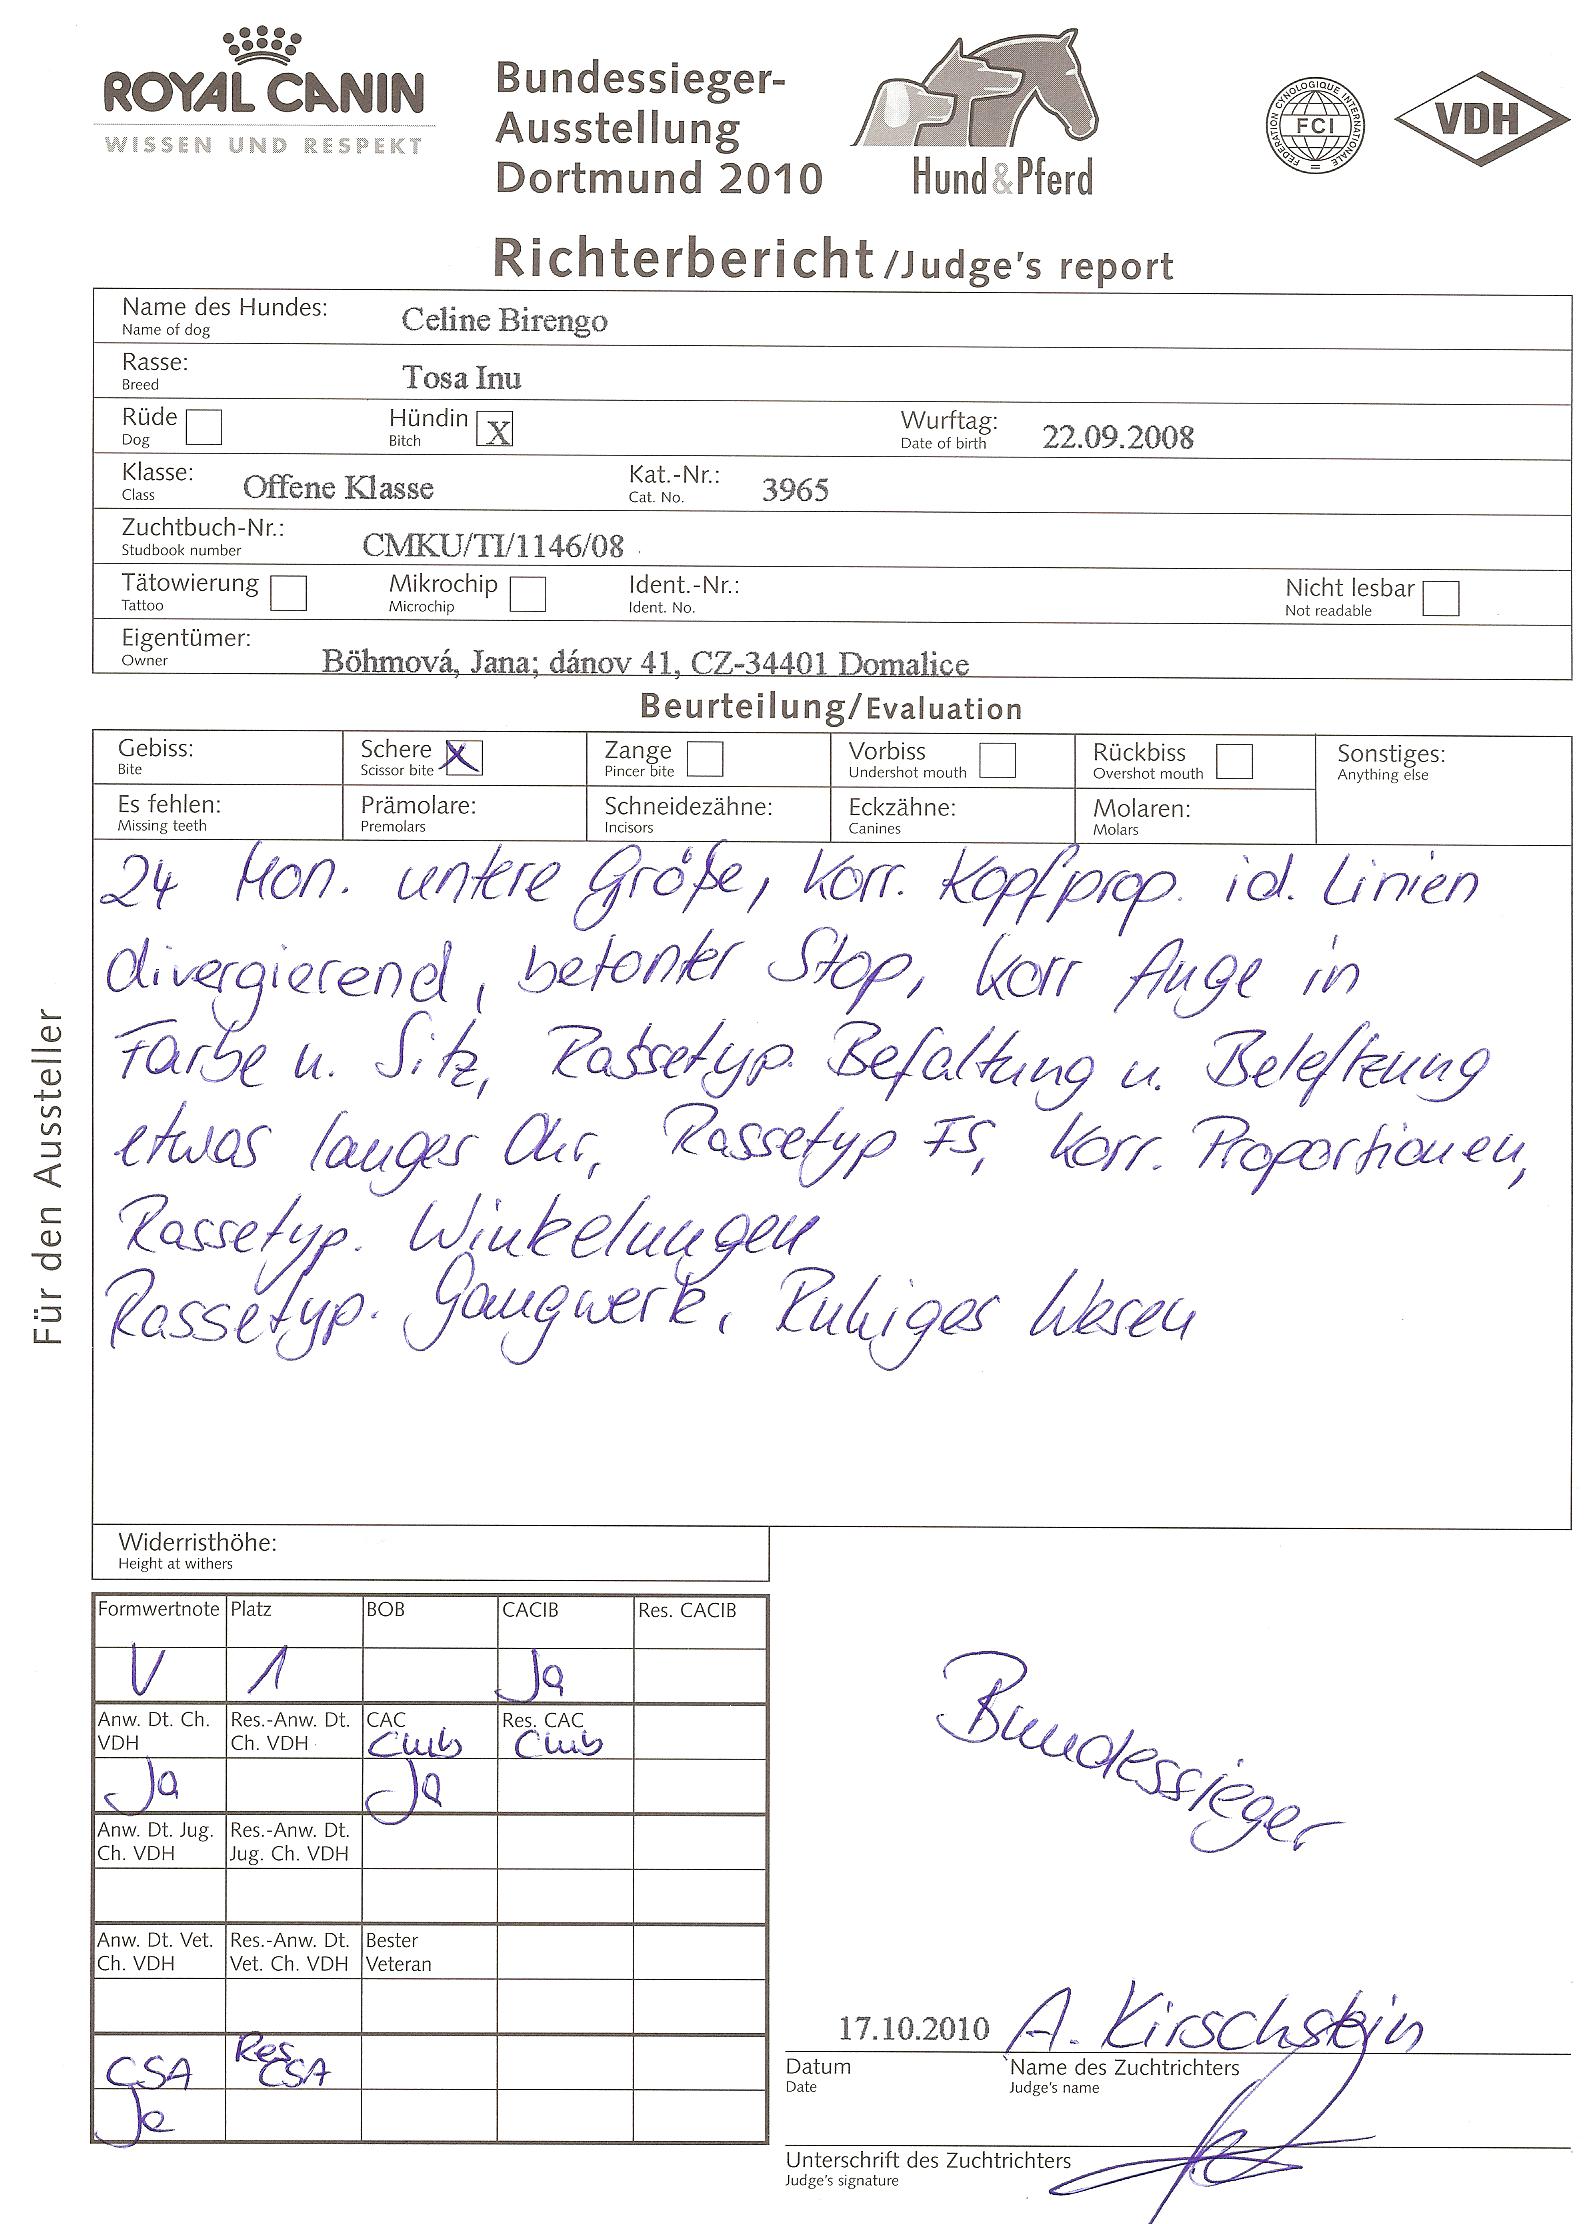 ROYAL CANIN
WISSEN UND RESPEKT
Bundessieger-
Ausstellung
Dortmund 2010
Hund&Pferd
FEDERATION CYNOLOGIQUE INTERNATIONALE
FCI
VDH
Richterbericht/Judge's report
Name des Hundes: Celine Birengo
Name of dog
Rasse: Tosa Inu
Breed
Rüde Hündin X Wurftag: 22.09.2008
Dog Bitch Date of birth
Klasse: Offene Klasse Kat.-Nr.: 3965
Class Cat. No.
Zuchtbuch-Nr.: CMKU/TI/1146/08
Studbook number
Tätowierung Mikrochip Ident.-Nr.: Nicht lesbar
Tattoo Microchip Ident. No. Not readable
Eigentümer: Böhmová, Jana; dánov 41, CZ-34401 Domalice
Owner
Beurteilung/Evaluation
Gebiss: Schere X Zange Vorbiss Rückbiss Sonstiges:
Bite Scissor bite Pincer bite Undershot mouth Overshot mouth Anything else
Es fehlen: Prämolare: Schneidezähne: Eckzähne: Molaren:
Missing teeth Premolars Incisors Canines Molars
24 Mon. untere Größe, korr. Kopfprop. id. Linien
divergierend, betonter Stop, korr Auge in
Farbe u. Sitz, Rassetyp. Befaltung u. Belefzung
etwas langes Ohr, Rassetyp FS, korr. Proportionen,
Rassetyp. Winkelungen
Rassetyp. Gangwerk, Ruhiges Wesen
Für den Aussteller
Widerristhöhe:
Height at withers
Formwertnote Platz BOB CACIB Res. CACIB
V 1 Ja
Anw. Dt. Ch. Res.-Anw. Dt. CAC Res. CAC
VDH Ch. VDH Club Club
Ja Ja
Anw. Dt. Jug. Res.-Anw. Dt.
Ch. VDH Jug. Ch. VDH
Anw. Dt. Vet. Res.-Anw. Dt. Bester
Ch. VDH Vet. Ch. VDH Veteran
CSA Res CSA
Ja
Bundessieger
17.10.2010 A. Kirschstein
Datum Name des Zuchtrichters
Date Judge's name
Unterschrift des Zuchtrichters
Judge's signature